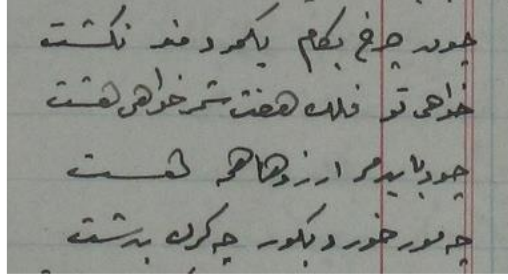 چون چرخ بکام یکخردمند نگشت
خواهی تو فلک هفت شمر خواهی هشت
چون باید مرد ارزوها همه هشت
چه مور خورد بکور چه کرک بدشت